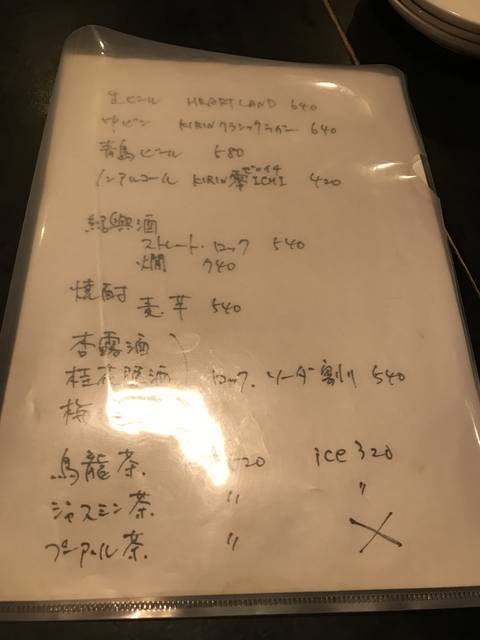 生ビール HEARTLAND 640
中ビン KIRINクラシックラガー 640
青島ビール 580
ゼロイチ
ノンアルコール KIRIN零ICHI 420
紹興酒
ストレート・ロック 540
燗 740
焼酎
麦.芋 540
杏露酒
桂花陳酒 ロック.ソーダ割り 540
梅
烏龍茶. 520 ice 320
ジャスミン茶. 〃 〃
プーアル茶 〃 ×